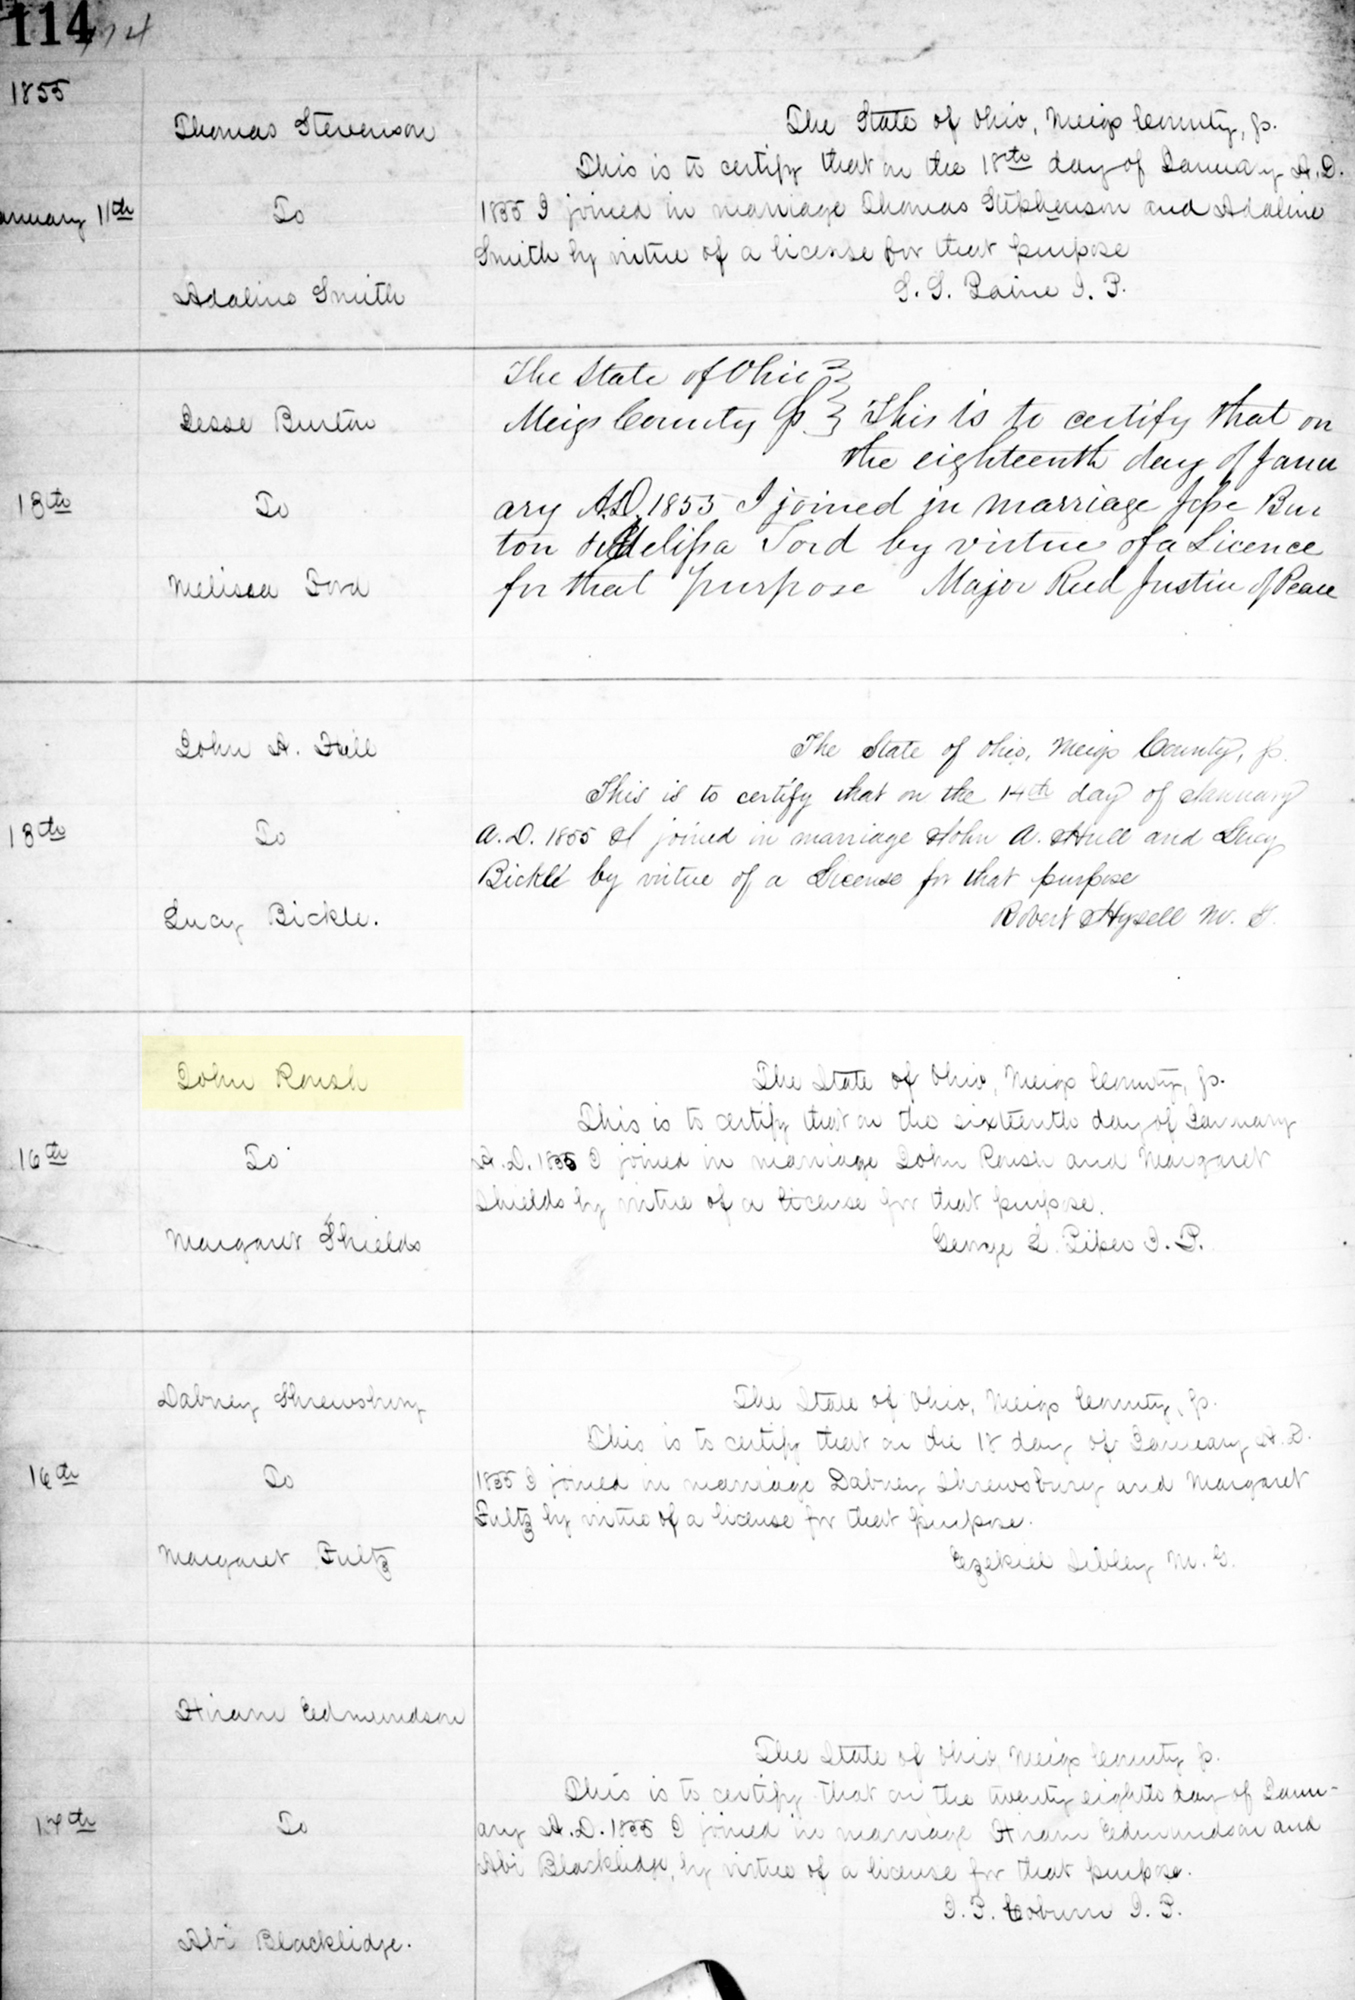 114 114
1855
Thomas Stevenson
January 11th To
Adaline Smith
The State of Ohio, Meigs County, ss.
This is to certify that on the 18th day of January A.D.
1855 I joined in marriage Thomas Stephenson and Adaline
Smith by virtue of a license for that purpose
S. S. Paine J. P.
Jesse Burton
18th To
Melissa Ford
The State of Ohio }
Meigs County ss } This is to certify that on
the eighteenth day of Janu
ary A.D. 1855 I joined in marriage Jesse Bur
ton to Melissa Ford by virtue of a Licence
for that purpose Major Reed Justice of Peace
John A. Hull
18th To
Lucy Bickle.
The State of Ohio, Meigs County, ss.
This is to certify that on the 14th day of January
A.D. 1855 I joined in marriage John A. Hull and Lucy
Bickle by virtue of a License for that purpose
Robert Hysell M. G.
John Roush
16th To
Margaret Shields
The State of Ohio, Meigs County, ss.
This is to certify that on the sixteenth day of January
A.D. 1855 I joined in marriage John Roush and Margaret
Shields by virtue of a license for that purpose.
George L. J. P.
Dabney Shrewsbury
16th To
Margaret Fultz
The State of Ohio, Meigs County, ss.
This is to certify that on the 18 day of January A.D.
1855 I joined in marriage Dabney Shrewsbury and Margaret
Fultz by virtue of a license for that purpose.
Ezekiel Sibley M. G.
Hiram Edmundson
17th To
Abi Blacklidge.
The State of Ohio Meigs County ss.
This is to certify that on the twenty eighth day of Janu-
ary A.D. 1855 I joined in marriage Hiram Edmundson and
Abi Blacklidge, by virtue of a license for that purpose.
J. P. Coburn J. P.